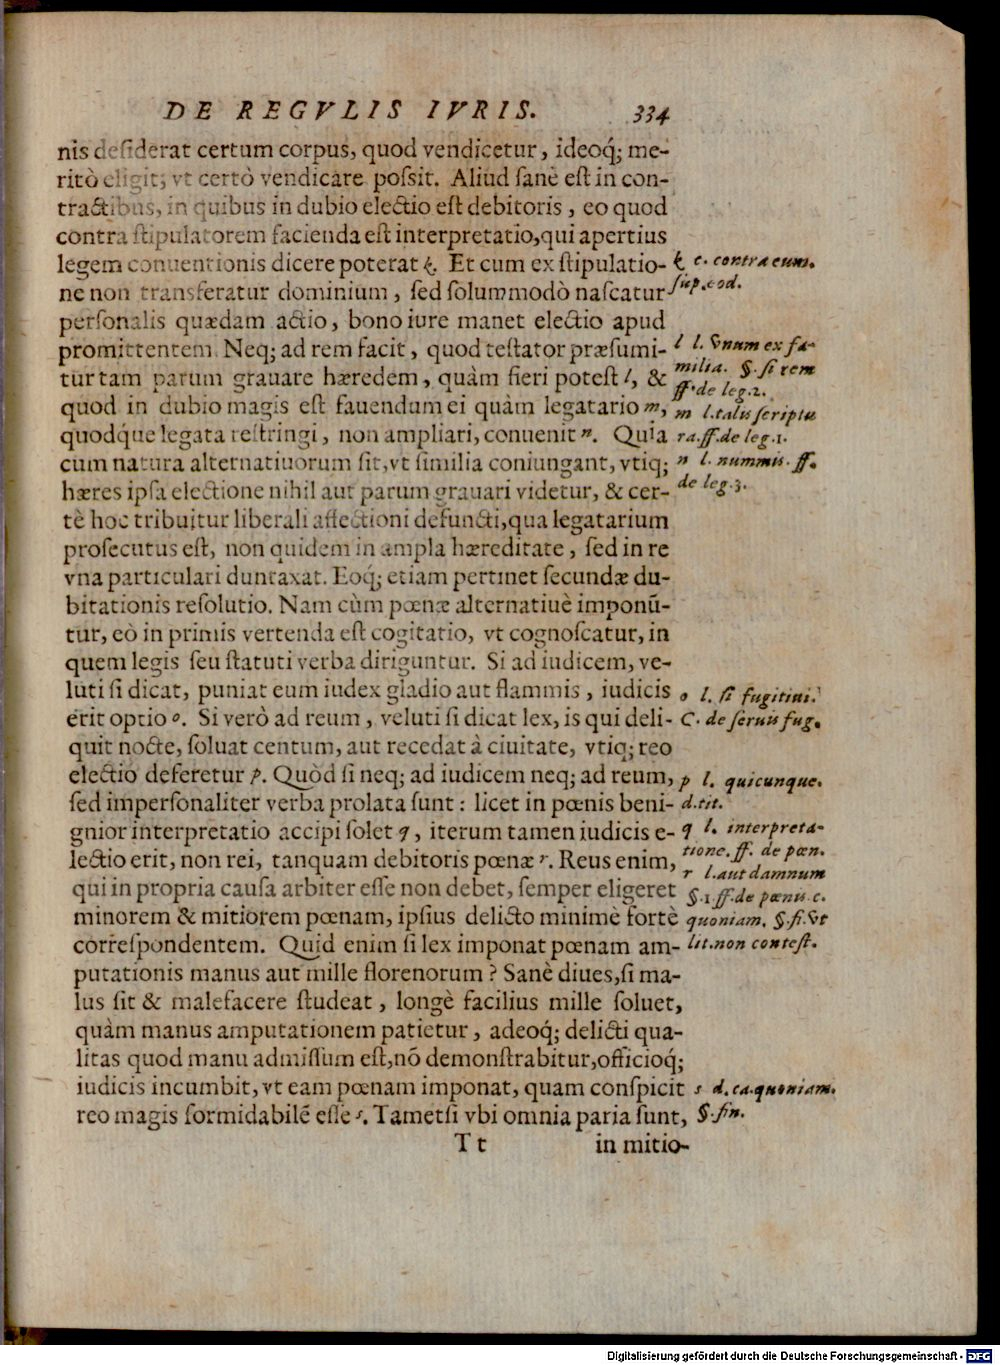 DE REGVLIS IVRIS. 334
nis desiderat certum corpus, quod vendicetur, ideoq́; me-
ritò eligit; vt certò vendicare possit. Aliud sanè est in con-
tractibus, in quibus in dubio electio est debitoris, eo quod
contra stipulatorem facienda est interpretatio, qui apertius
legem conuentionis dicere poterat k. Et cum ex stipulatio-
ne non transferatur dominium, sed solummodò nascatur
personalis quædam actio, bono iure manet electio apud
promittentem. Neq; ad rem facit, quod testator præsumi-
tur tam parum grauare hæredem, quàm fieri potest l, &
quod in dubio magis est fauendum ei quàm legatario m,
quodq́ue legata restringi, non ampliari, conuenit n. Quia
cum natura alternatiuorum sit, vt similia coniungant, vtiq;
hæres ipsa electione nihil aut parum grauari videtur, & cer-
tè hoc tribuitur liberali affectioni defuncti, qua legatarium
prosecutus est, non quidem in ampla hæreditate, sed in re
vna particulari duntaxat. Eoq́; etiam pertinet secundæ du-
bitationis resolutio. Nam cùm pœnæ alternatiuè imponũ-
tur, eò in primis vertenda est cogitatio, vt cognoscatur, in
quem legis seu statuti verba diriguntur. Si ad iudicem, ve-
luti si dicat, puniat eum iudex gladio aut flammis, iudicis
erit optio o. Si verò ad reum, veluti si dicat lex, is qui deli-
quit nocte, soluat centum, aut recedat à ciuitate, vtiq; reo
electio deferetur p. Quòd si neq; ad iudicem neq; ad reum,
sed impersonaliter verba prolata sunt: licet in pœnis beni-
gnior interpretatio accipi solet q, iterum tamen iudicis e-
lectio erit, non rei, tanquam debitoris pœnæ r. Reus enim,
qui in propria causa arbiter esse non debet, semper eligeret
minorem & mitiorem pœnam, ipsius delicto minimè fortè
correspondentem. Quid enim si lex imponat pœnam am-
putationis manus aut mille florenorum? Sanè diues, si ma-
lus sit & malefacere studeat, longè facilius mille soluet,
quàm manus amputationem patietur, adeoq́; delicti qua-
litas quod manu admissum est, nõ demonstrabitur, officioq́;
iudicis incumbit, vt eam pœnam imponat, quam conspicit
reo magis formidabilẽ esse s. Tametsi vbi omnia paria sunt,
T t in mitio-
k c. contra eum.
sup. eod.
l l. vnum ex fa-
milia. §. si rem
ff. de leg. 2.
m l. talis scriptu
ra. ff. de leg. 1.
n l. nummis. ff.
de leg. 3.
o l. si fugitiui.
C. de seruis fug.
p l. quicunque.
d. tit.
q l. interpreta-
tione. ff. de pœn.
r l. aut damnum
§. 1 ff. de pœnis. c.
quoniam. §. fi. vt
lit. non contest.
s d. ca. quoniam.
§. fin.
Digitalisierung gefördert durch die Deutsche Forschungsgemeinschaft - DFG